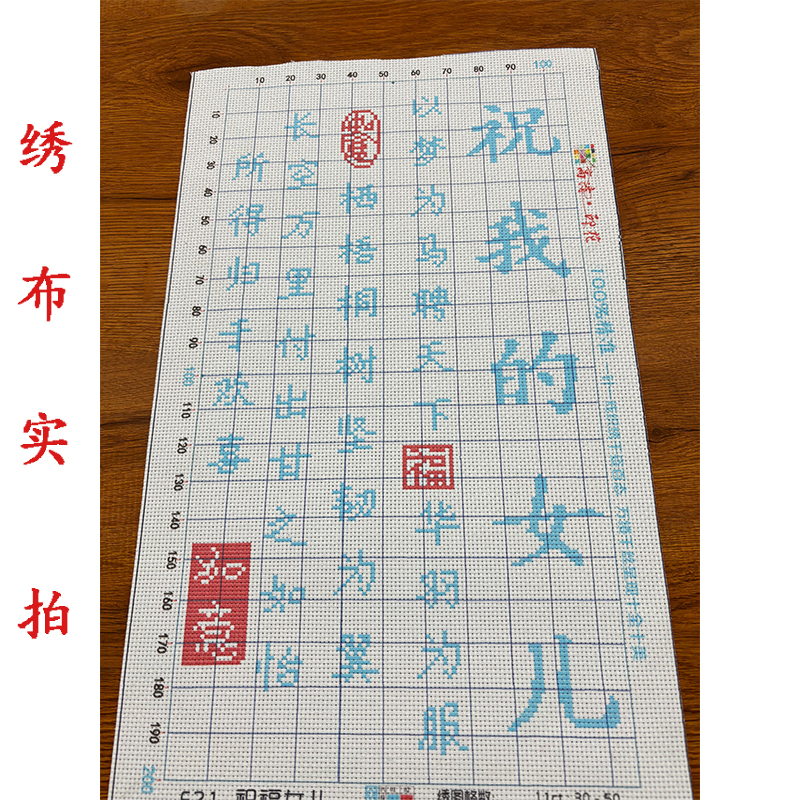 绣布实拍
10 20 30 40 50 60 70 80 90 100
10
20
30
40
50
60
70
80
90
100
110
120
130
140
150
160
170
180
190
200
祝我的女儿
以梦为马聘天下
福
华羽为服
栖梧桐树坚韧为翼
长空万里付出甘之如饴
所得归于欢喜
如意
100%精准
绣图格数:
11ct:30
50